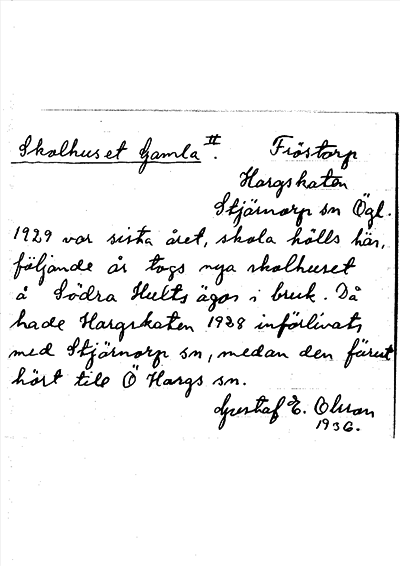 Skolhuset Gamla II. Fröstorp
Hargskaten
Stjärnorp sn Ögl.
1929 var sista året, skola hölls här,
följande år togs nya skolhuset
å Södra Hults ägor i bruk. Då
hade Hargskaten 1928 införlivats
med Stjärnorp sn, medan den förut
hört till Ö Hargs sn.
Gustaf E. Olsson
1936.